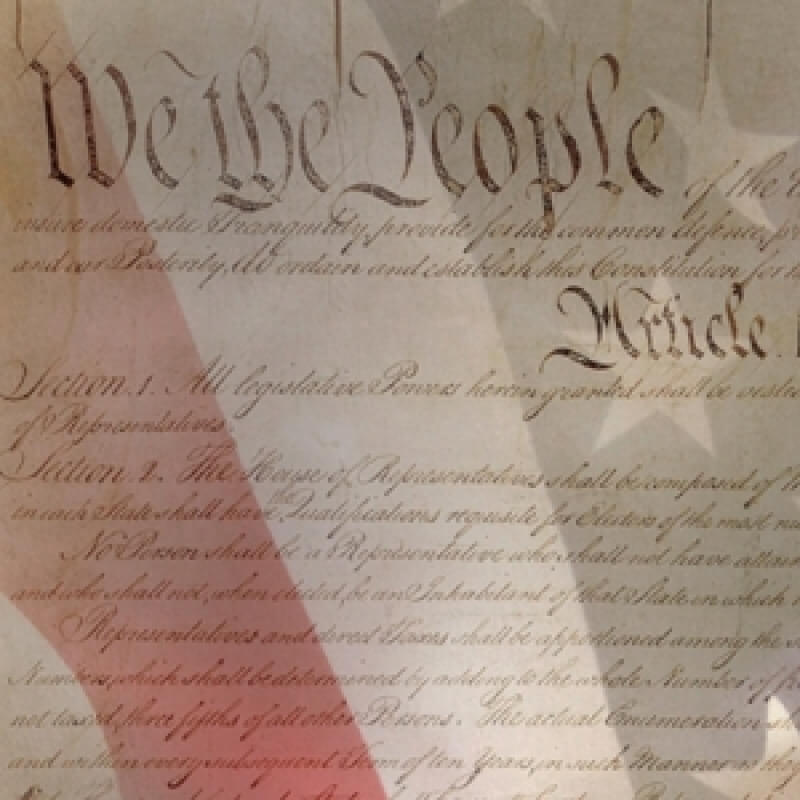 We the People of the
insure domestic Tranquility, provide for the common defence,
and our Posterity, do ordain and establish this Constitution for
Article.
Section. 1. All legislative Powers herein granted shall be
of Representatives.
Section. 2. The House of Representatives shall be composed of
in each State shall have the Qualifications requisite for Electors of the most
No Person shall be a Representative who shall not have
and who shall not, when elected, be an Inhabitant of that State in which
Representatives and direct Taxes shall be apportioned among the
Numbers, which shall be determined by adding to the whole Number of
not taxed, three fifths of all other Persons. The actual Enumeration
and within every subsequent Term of ten Years, in such Manner as they